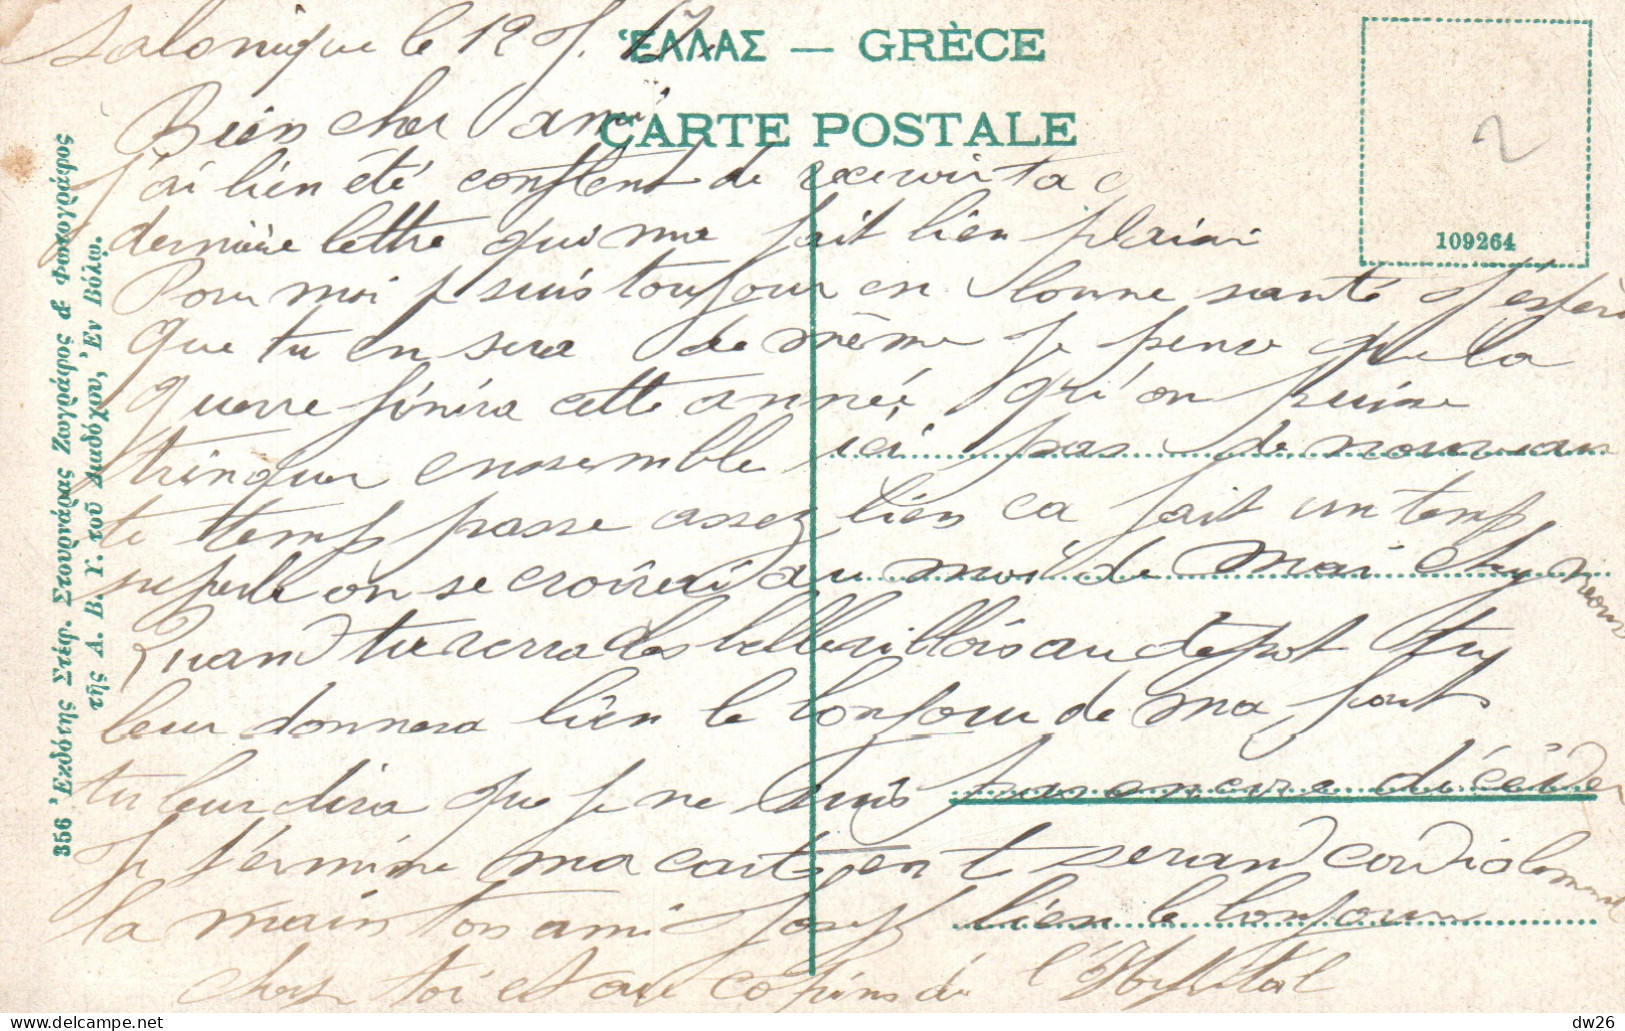 Salonique le 19 J. 17
ἙΛΛΑΣ — GRÈCE
CARTE POSTALE
109264
2
Bien cher ami
J'ai bien été contient de recevoir ta
dernière lettre qui me fait bien plaisi
Pour moi je suis toujour en bonne santé J'espère
que tu en sera de même je pence que la
guerre finira cette année, qu'on puise
trinquer ensemble ici pas de nouveau
le temp passe assez bien ca fait un temp
superbe on se croirai au moi de mai
Quand tu verra des bellevillois au depot tu
leur donnera bien le bonjour de ma part
tu leur dira que je ne suis pas encore décéder
Je termine ma carte en t serand cordialement
la main ton ami Josef bien le bonjour
chez toi et au copins de l'Hopital
356 Ἐκδότης Στέφ. Στουρνάρας Ζωγράφος & Φωτογράφος
τῆς Α. Β. Υ. τοῦ Διαδόχου, Ἐν Βόλῳ.
dw26